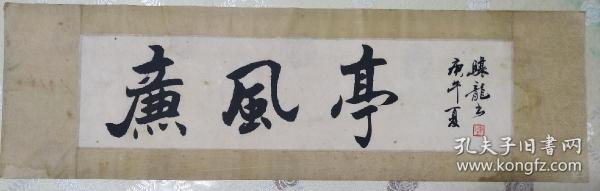 廉風亭
驤龍书
庚午夏
孔夫子旧书网
www.kongfz.com